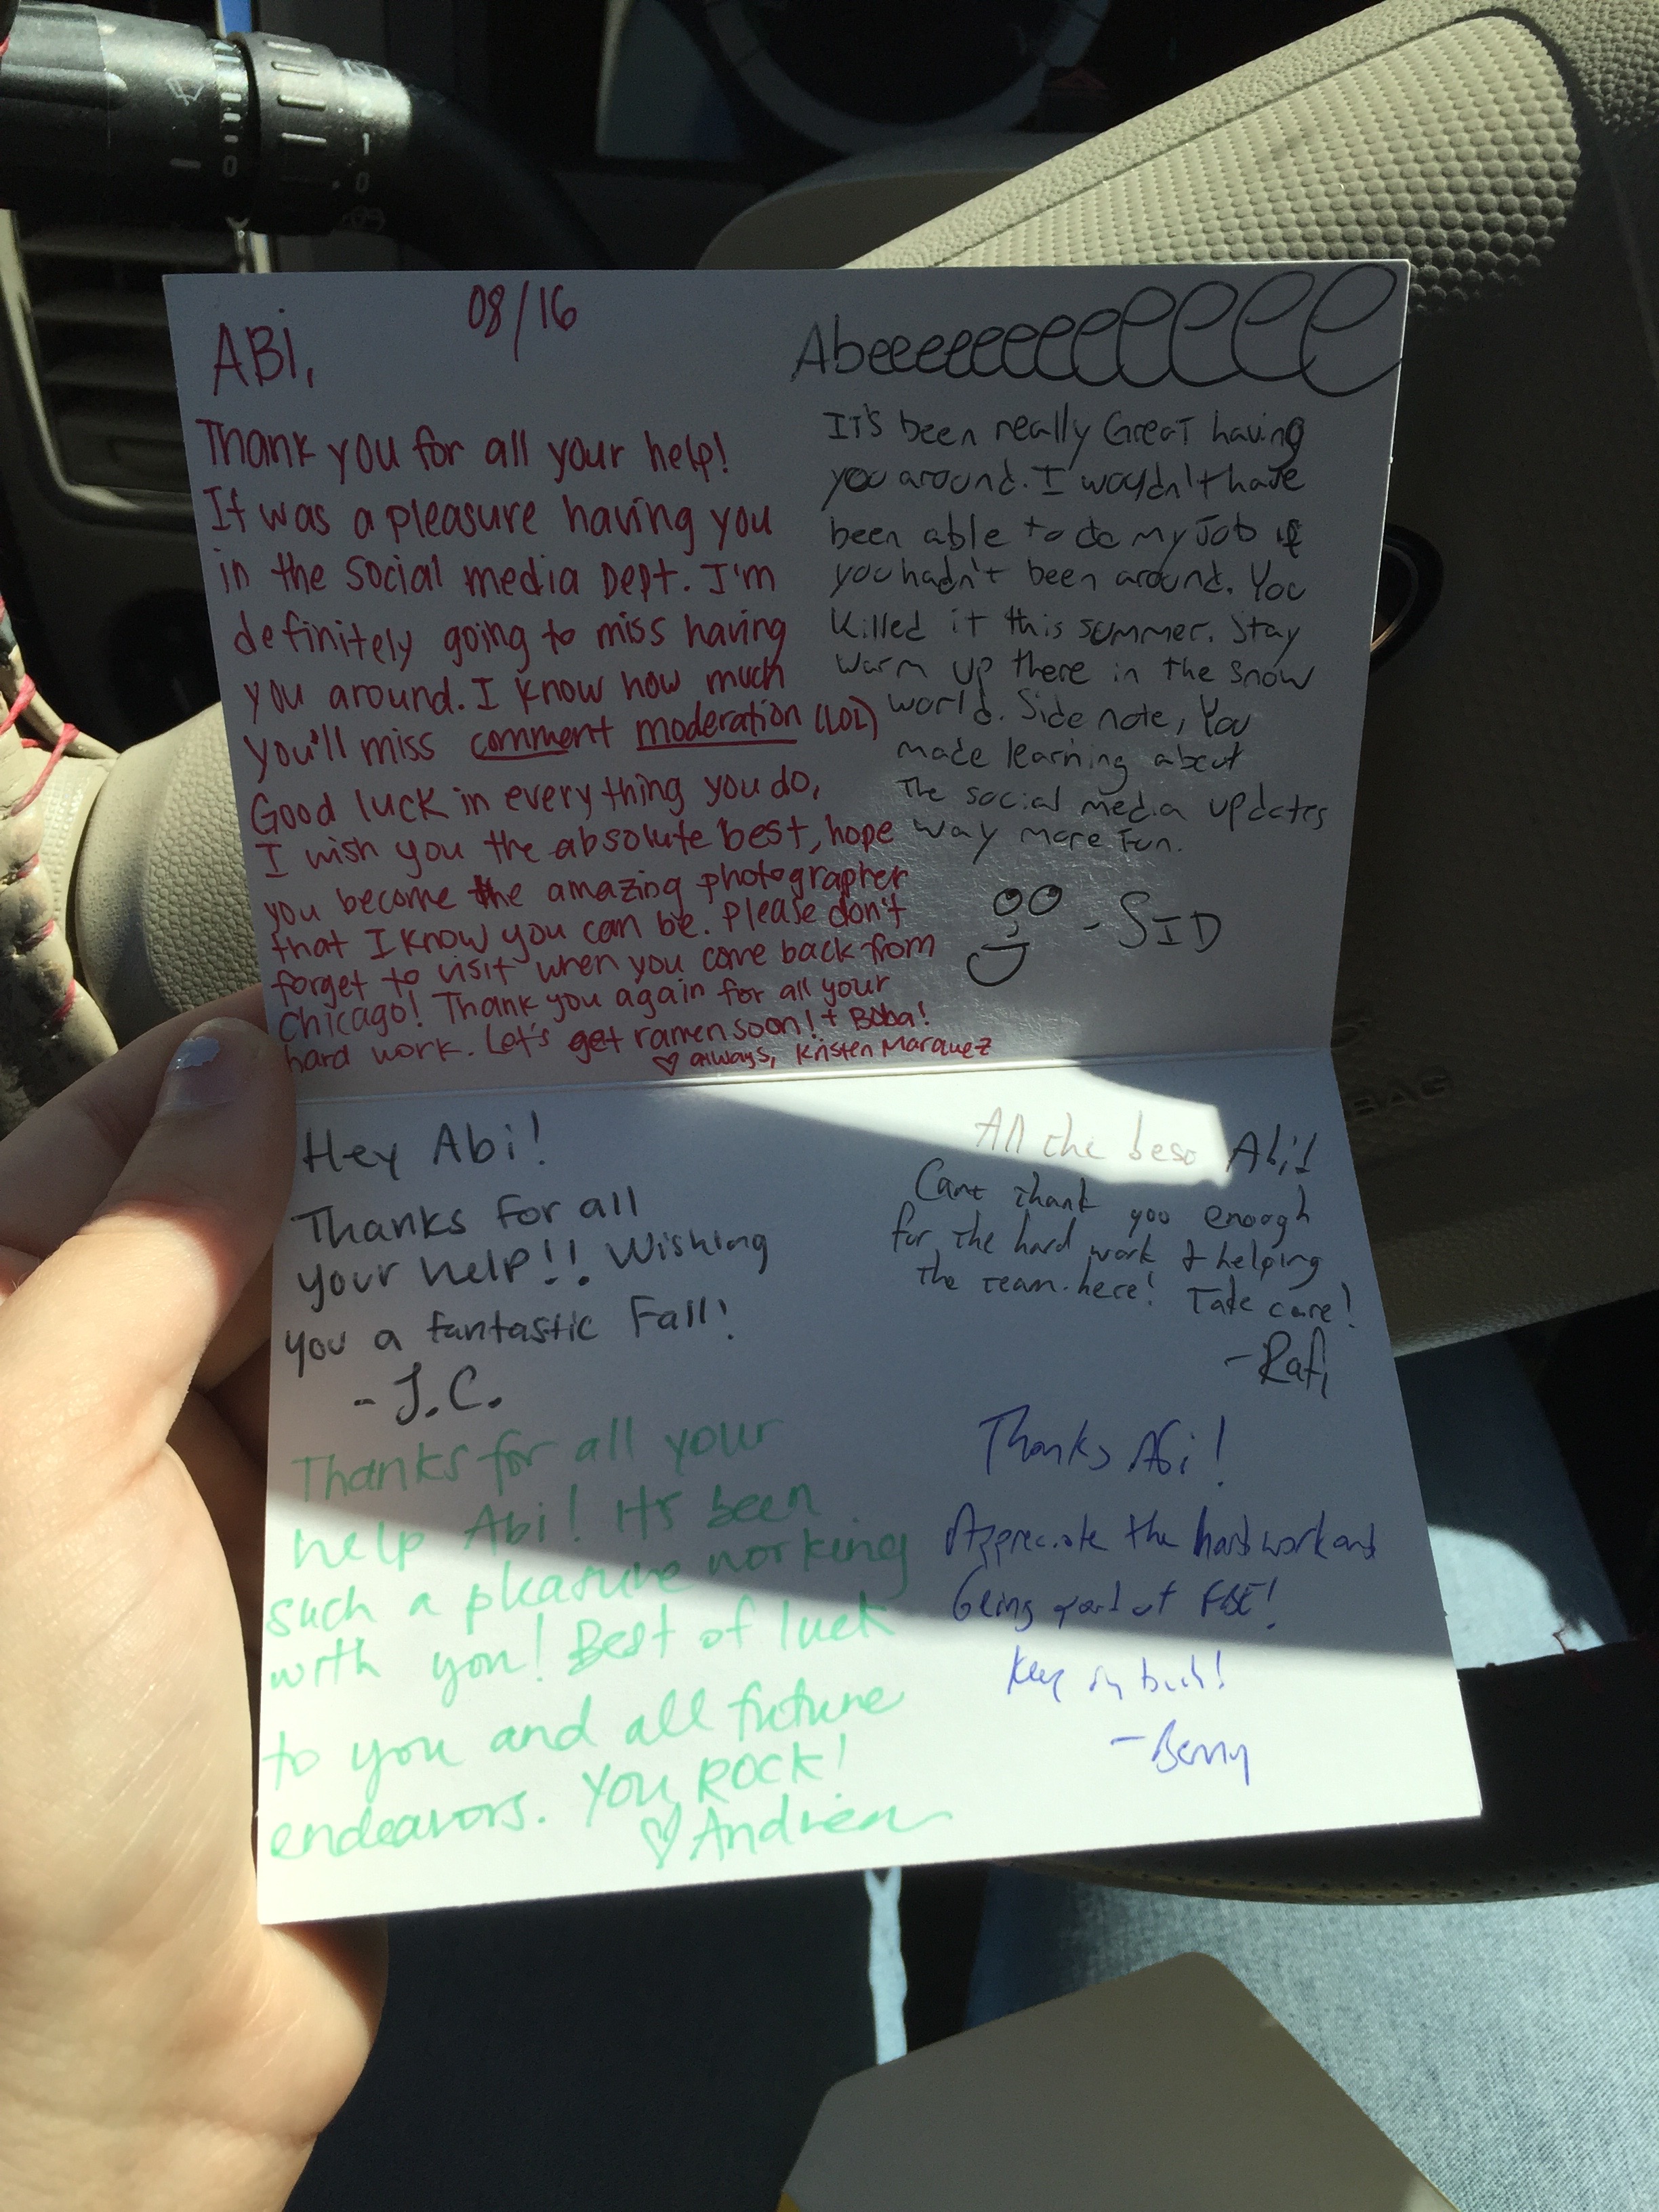 08/16
ABi,
Thank you for all your help!
It was a pleasure having you
in the social media Dept. I'm
definitely going to miss having
you around. I know how much
you'll miss comment moderation (LOL)
Good luck in everything you do,
I wish you the absolute best, hope
you become the amazing photographer
that I know you can be. Please don't
forget to visit when you come back from
Chicago! Thank you again for all your
hard work. Let's get ramen soon! + Boba!
♡ always, Kristen Marquez
Abeeeeeeeeeeeeee
IT's been really GreaT having
you around. I wouldn't have
been able to do my Job if
you hadn't been around. You
killed it this summer. Stay
warm up there in the snow
world. Side note, You
made learning about
The social media updates
way more fun.
- SID
Hey Abi!
Thanks for all
your help!! Wishing
you a fantastic Fall!
- J.C.
All the best Abi!
Cant thank you enough
for the hard work & helping
the team here! Take care!
- Rafi
Thanks for all your
help Abi! It's been
such a pleasure working
with you! Best of luck
to you and all future
endeavors. YOU ROCK!
♡ Andrea
Thanks Abi!
Appreciate the hard work and
being part of FBE!
Keep in touch!
- Benny
BAG